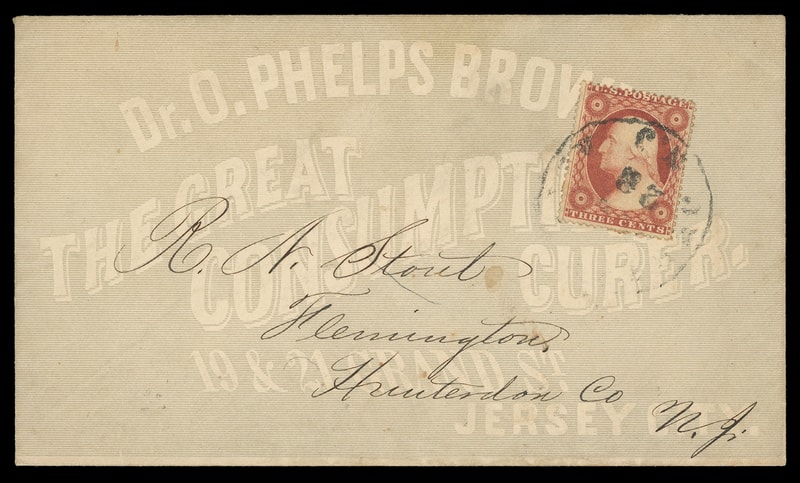 Dr. O. PHELPS BROWN
U.S. POSTAGE
THREE CENTS
THE GREAT
CONSUMPTION
CURER.
19 & 21 GRAND ST.
JERSEY CITY.
R. N. Stout
Flemington,
Hunterdon Co
N.J.